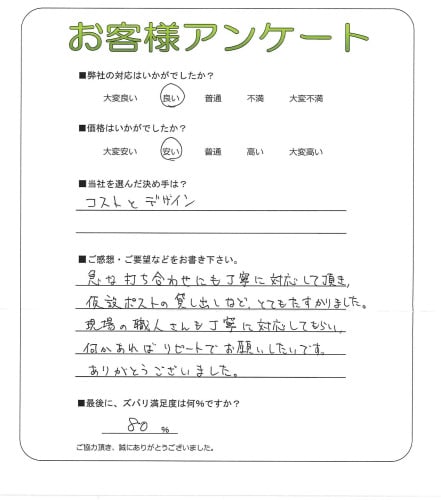 お客様アンケート
■弊社の対応はいかがでしたか?
大変良い 良い 普通 不満 大変不満
■価格はいかがでしたか?
大変安い 安い 普通 高い 大変高い
■当社を選んだ決め手は?
コストとデザイン
■ご感想・ご要望などをお書き下さい。
急な打ち合わせにも丁寧に対応して頂き、
仮設ポストの貸し出しなど、とてもたすかりました。
現場の職人さんも丁寧に対応してもらい、
何かあればリピートでお願いしたいです。
ありがとうございました。
■最後に、ズバリ満足度は何%ですか?
80 %
ご協力頂き、誠にありがとうございました。